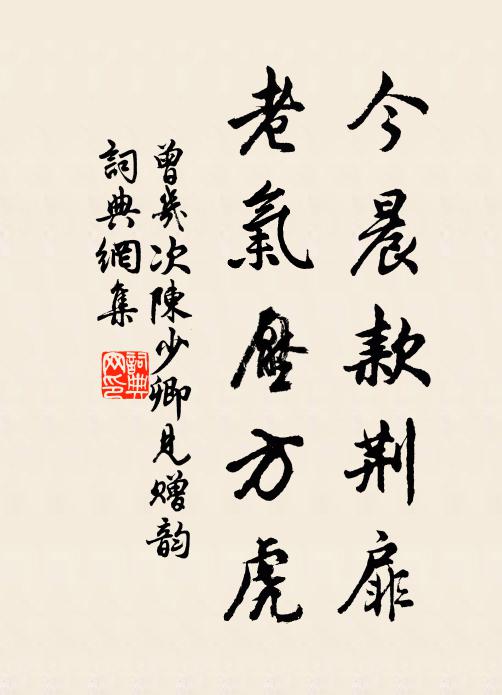 今晨款荆扉
老氣壓方虎
曾幾次陳少卿見贈韵
詞典網集
詞典
网印